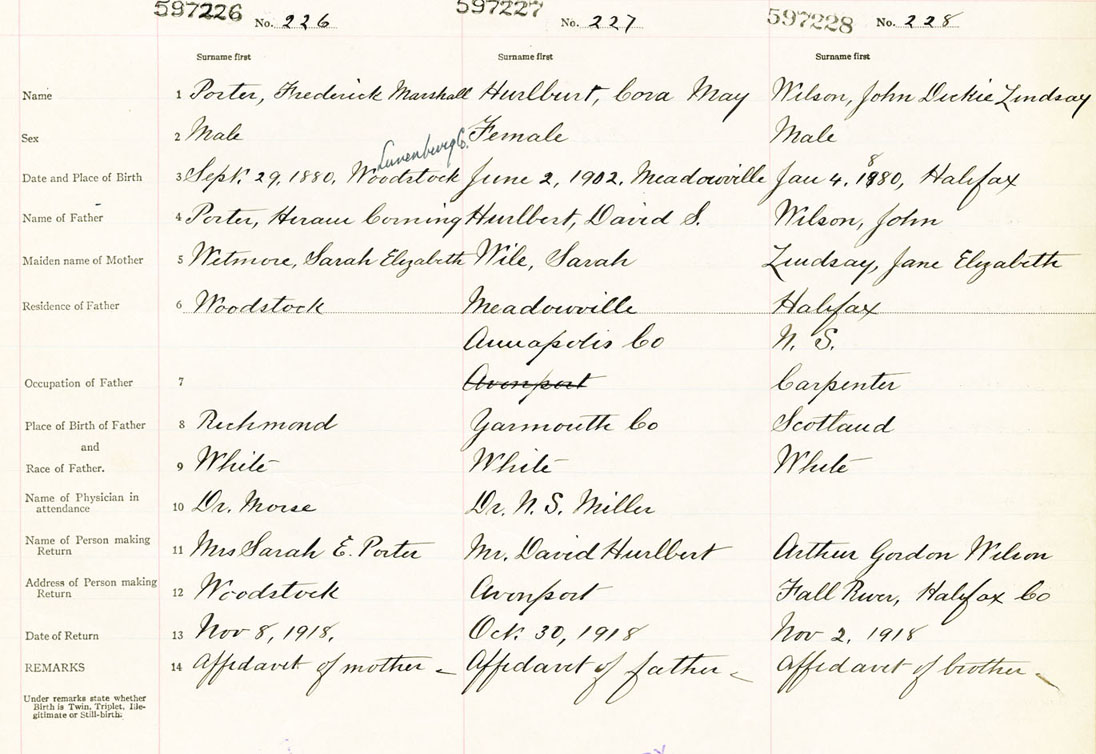 597226 No. 226 597227 No. 227 597228 No. 228
Surname first Surname first Surname first
Name 1 Porter, Frederick Marshall Hurlburt, Cora May Wilson, John Dickie Lindsay
Sex 2 Male Female Male
Lunenburg Co.
Date and Place of Birth 3 Sept. 29, 1880. Woodstock June 2, 1902. Meadowville Jan 4. 1880, Halifax
Name of Father 4 Porter, Hiram Corning Hurlbert, David S. Wilson, John
Maiden name of Mother 5 Wetmore, Sarah Elizabeth Wile, Sarah Lindsay, Jane Elizabeth
Residence of Father 6 Woodstock Meadowville Halifax
Annapolis Co N. S.
Occupation of Father 7 Avonport Carpenter
Place of Birth of Father 8 Richmond Yarmouth Co Scotland
and
Race of Father. 9 White White White
Name of Physician in
attendance 10 Dr. Morse Dr. N. S. Miller
Name of Person making
Return 11 Mrs Sarah E. Porter Mr. David Hurlbert Arthur Gordon Wilson
Address of Person making
Return 12 Woodstock Avonport Fall River, Halifax Co
Date of Return 13 Nov 8, 1918. Oct. 30, 1918 Nov 2. 1918
REMARKS 14 Affidavit of mother Affidavit of father Affidavit of brother
Under remarks state whether
Birth is Twin, Triplet, Ille-
gitimate or Still-birth.